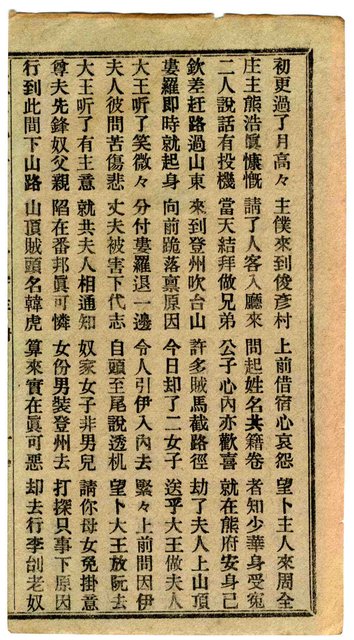 初更過了月高々　主僕來到俊彥村　上前借宿心哀怨　望卜主人來周全
庄主熊浩眞慷慨　請了人客入廳來　問起姓名共籍卷　者知少華身受寃
二人說話有投機　當天結拜做兄弟　公子心內亦歡喜　就在熊府安身己
欽差赶路過山東　來到登州吹台山　許多賊馬截路徑　劫了夫人上山頂
婁羅即時就起身　向前跪落禀原因　今日却了二女子　送乎大王做夫人
大王听了笑微々　分付婁羅退一邊　令人引伊入內去　緊々上前問因伊
夫人彼問苦傷悲　丈夫被害下代志　自頭至尾說透机　望卜大王放阮去
大王听了有主意　就共夫人相通知　奴家女子非男兒　請你母女免掛意
尊夫先鋒奴父親　陷在番邦眞可憐　女份男裝登州去　打探只事下原因
行到此間下山路　山頂賊頭名韓虎　算來實在眞可惡　却去行李刣老奴